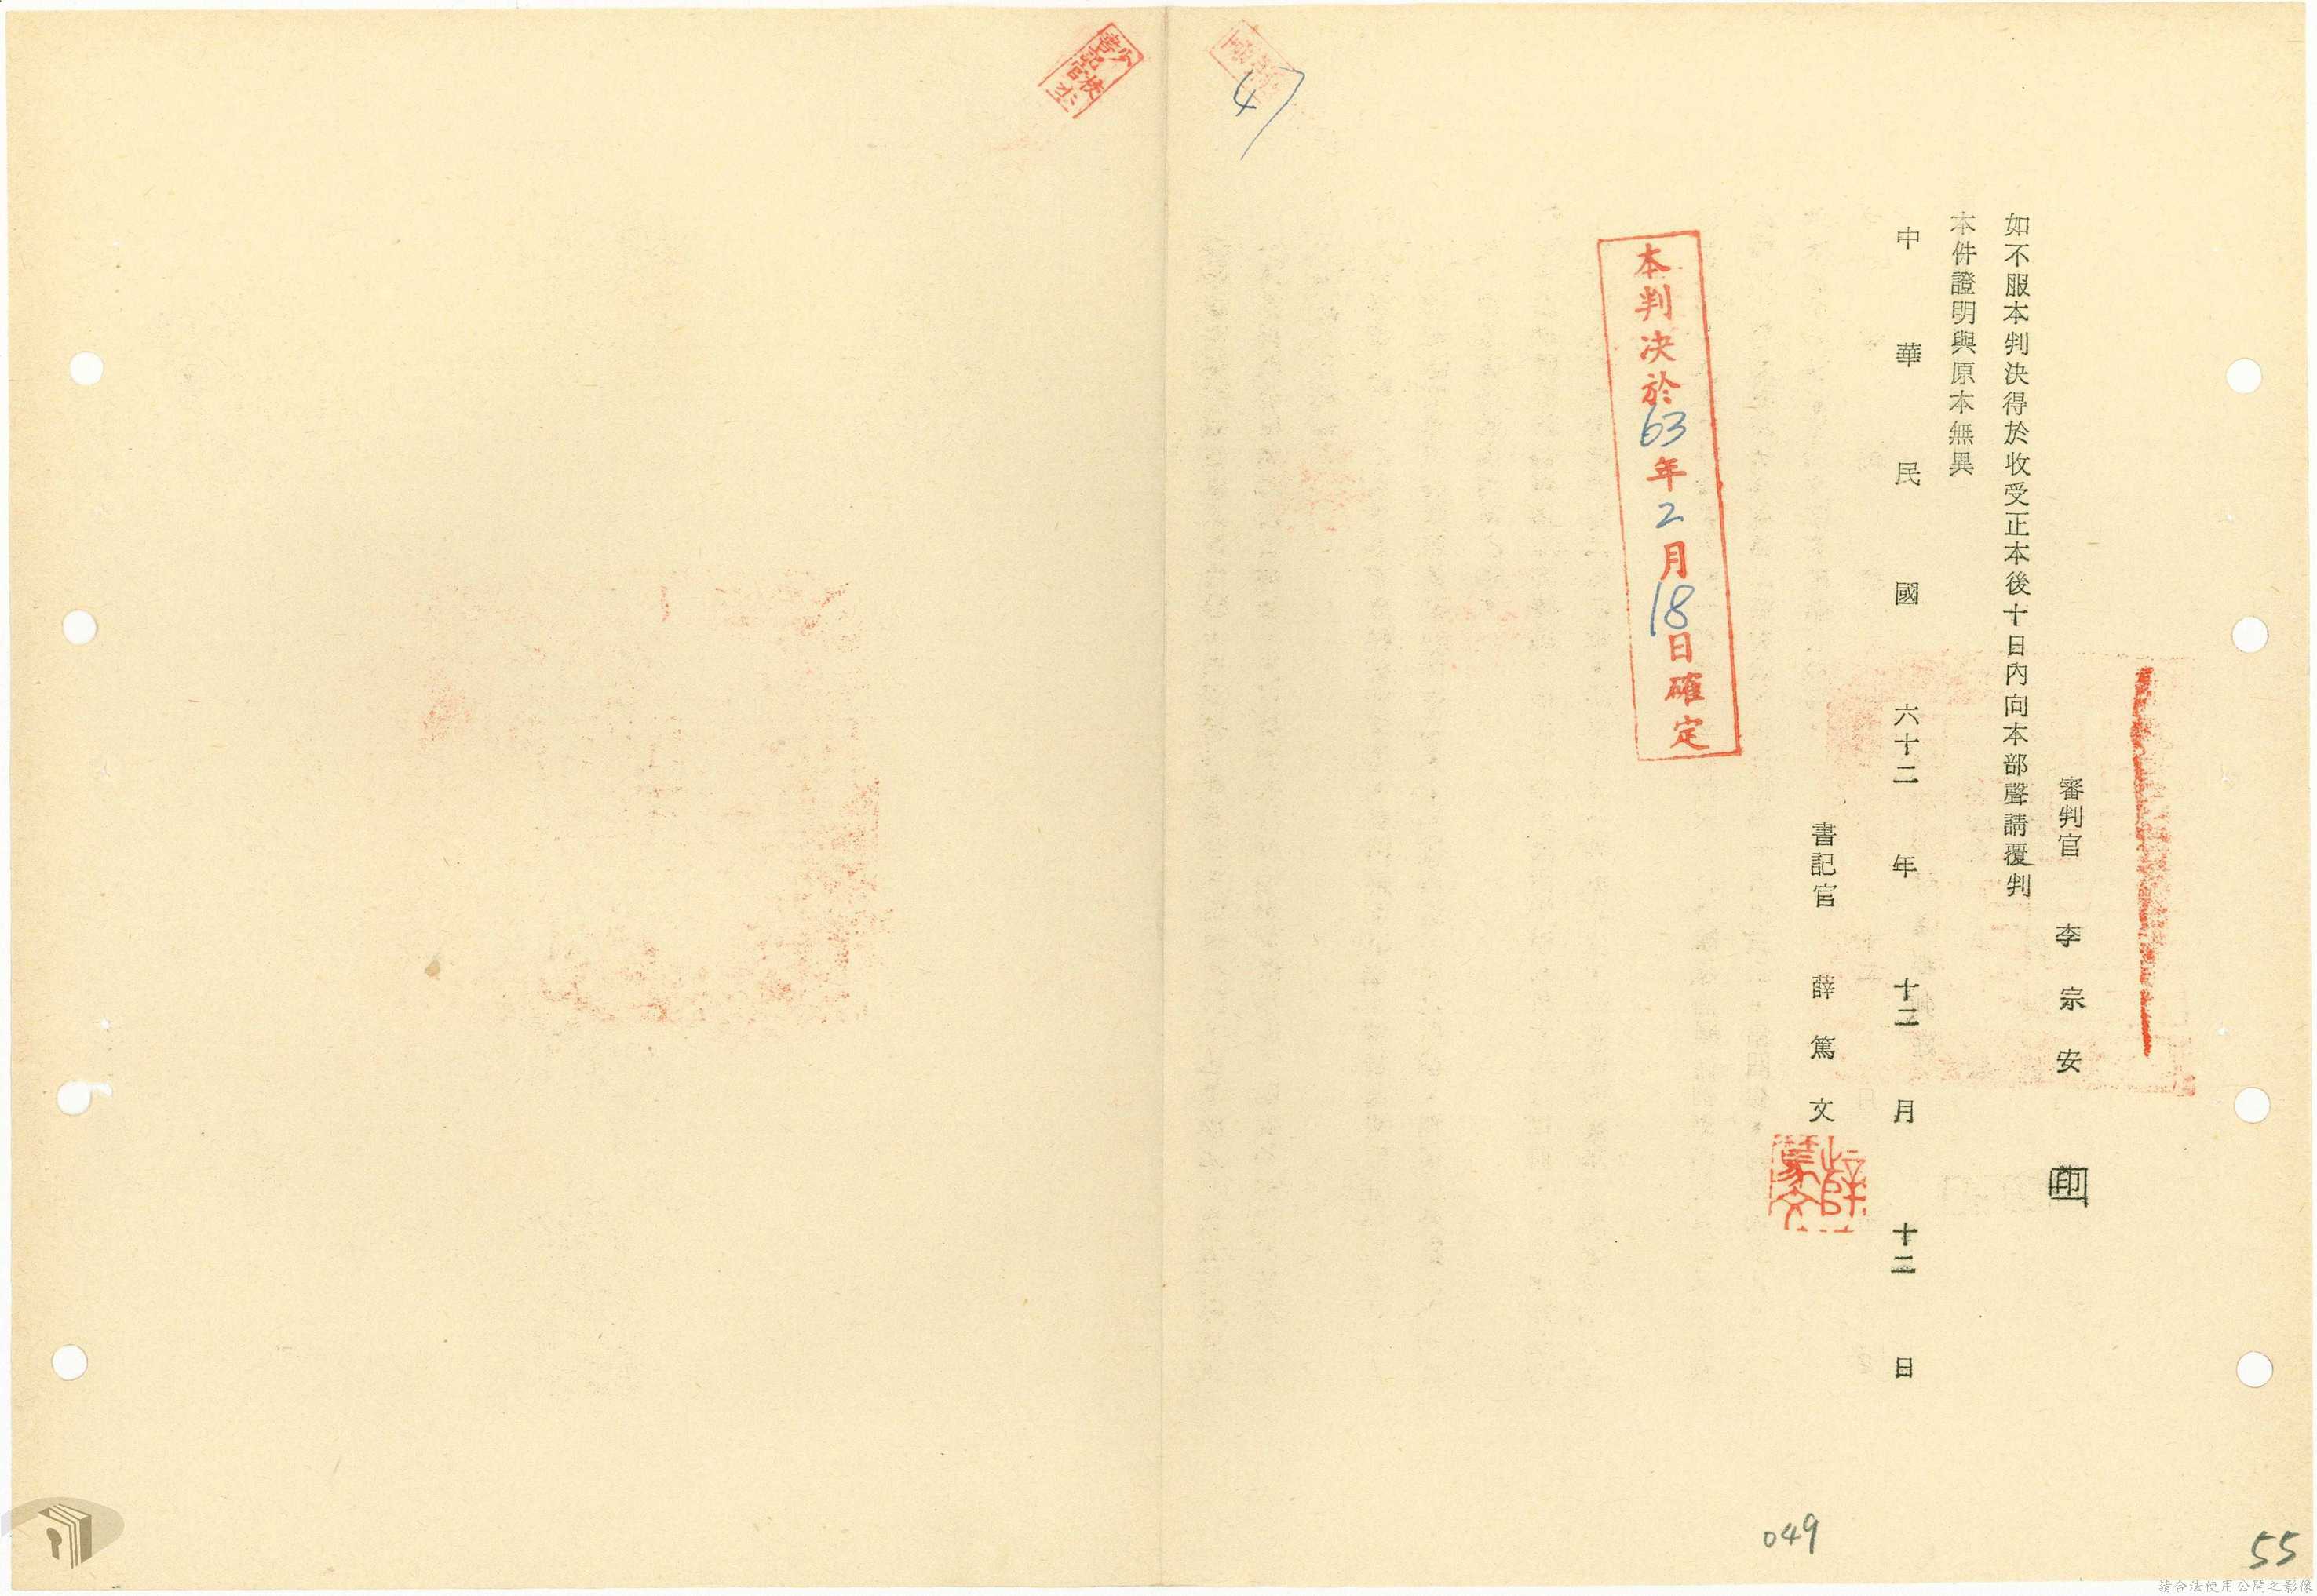 審判官 李宗安 印
如不服本判決得於收受正本後十日內向本部聲請覆判
本件證明與原本無異
中華民國六十二年十二月十二日
書記官 薛篤文
薛篤文
本判决於63年2月18日確定
4
049
55
請合法使用公開之影像